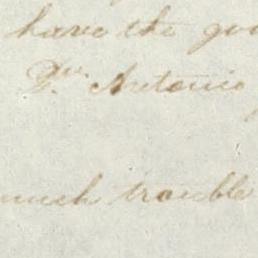 have the
Antonio
much trouble